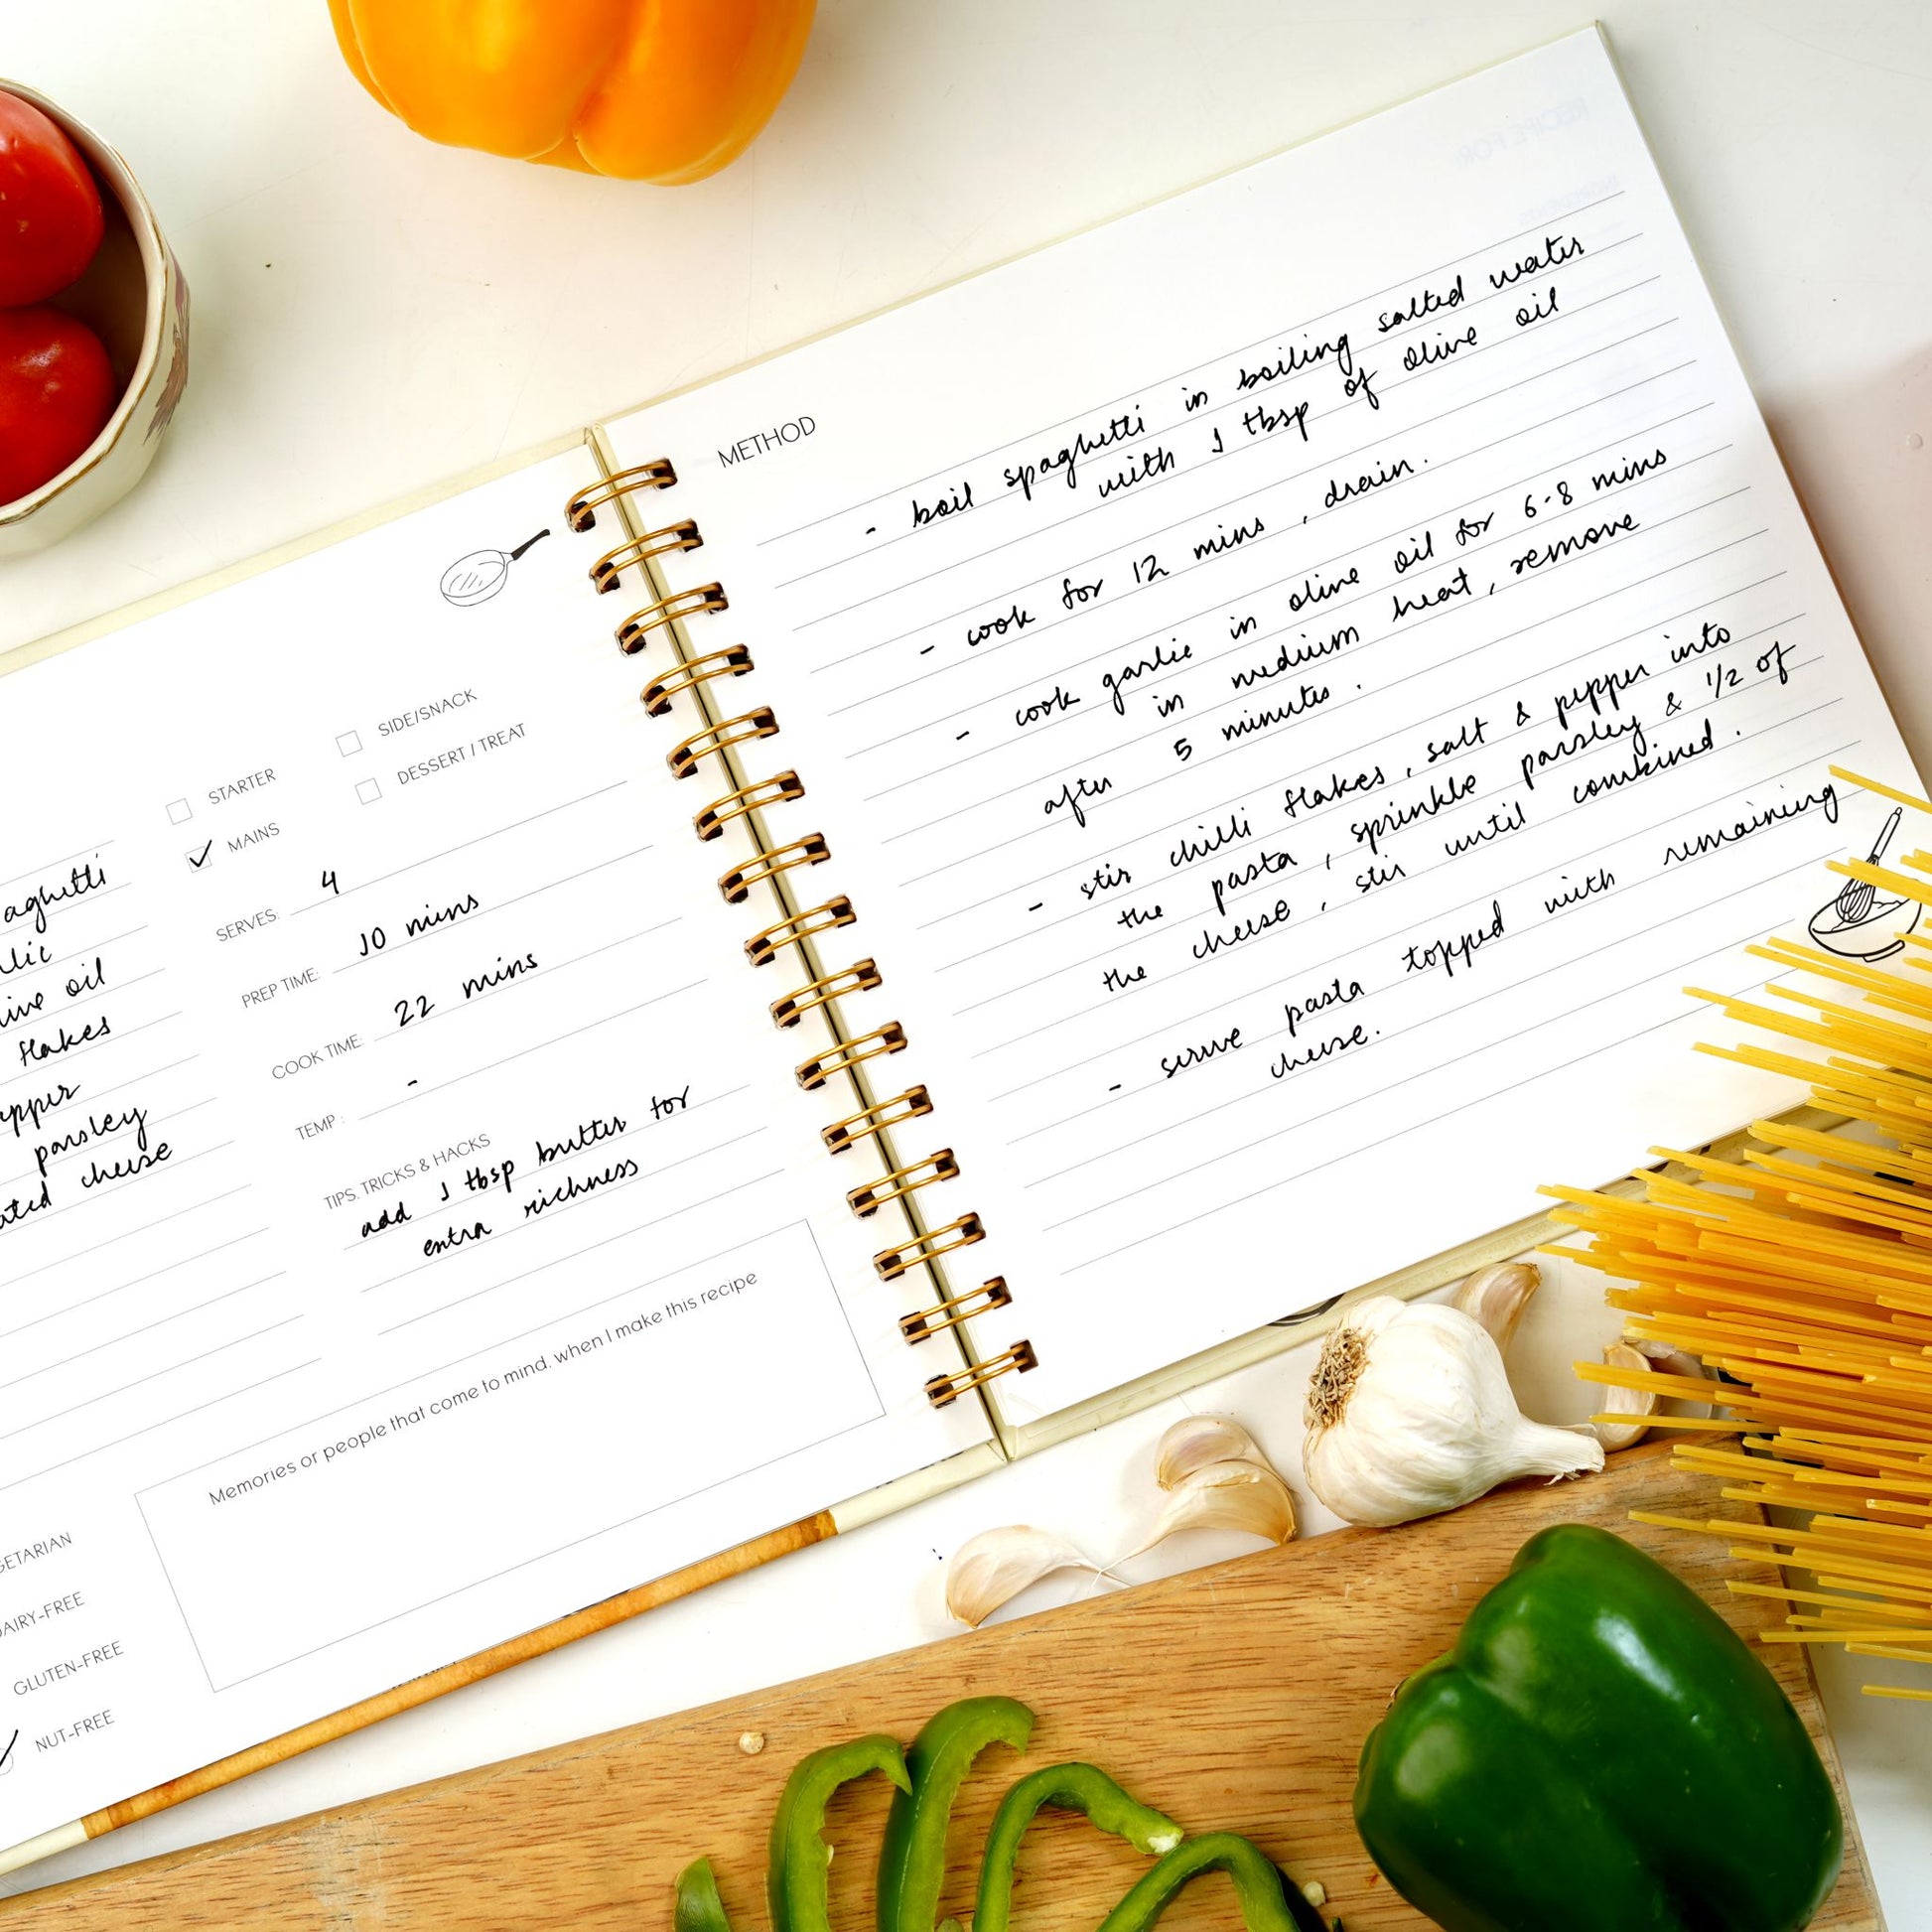 aghetti
lic
ive oil
flakes
epper
parsley
ated cheese
STARTER
MAINS
SIDE/SNACK
DESSERT / TREAT
SERVES: 4
PREP TIME: 10 mins
COOK TIME: 22 mins
TEMP: -
TIPS, TRICKS & HACKS
add 1 tbsp butter for
extra richness
Memories or people that come to mind, when I make this recipe
GETARIAN
DAIRY-FREE
GLUTEN-FREE
NUT-FREE
METHOD
- boil spaghetti in boiling salted water
with 1 tbsp of olive oil
- cook for 12 mins, drain.
- cook garlic in olive oil for 6-8 mins
in medium heat, remove
after 5 minutes.
- stir chilli flakes, salt & pepper into
the pasta, sprinkle parsley & 1/2 of
the cheese, stir until combined.
- serve pasta topped with remaining
cheese.
RECIPE FOR: